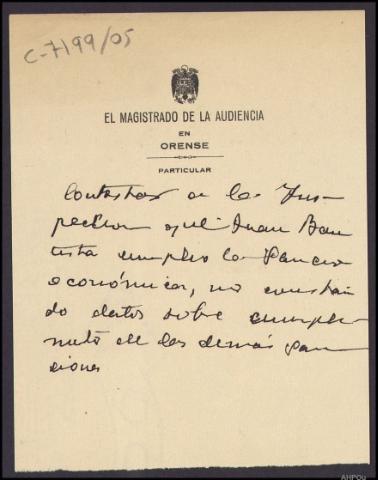 C-7199/05
EL MAGISTRADO DE LA AUDIENCIA
EN
ORENSE
PARTICULAR
Contestar a la Ins-
peccion que Juan Bau
tista cumplio la sancion
económica, no constan
do datos sobre cumpli-
miento de las demás san
ciones
AHPOu